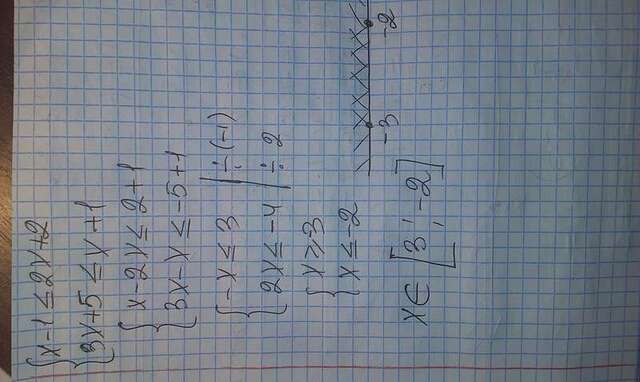 {x-1≤2x+2
{3x+5≤x+1
{x-2x≤2+1
{3x-x≤-5+1
{-x≤3 | ÷(-1)
{2x≤-4 | ÷2
{x≥-3
{x≤-2
-3 -2
x∈[3;-2]